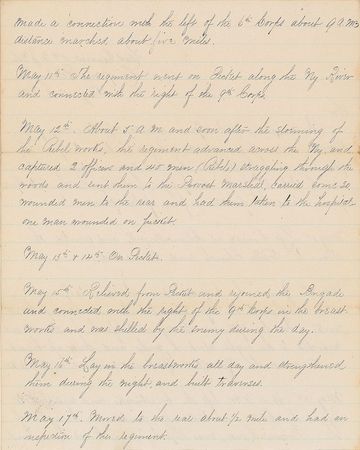 made a connection with the left of the 6th Corps about 9 A.M.
distance marched about five miles.
May 11th The regiment went on Picket along the Ny River
and connected with the right of the 9th Corps.
May 12th. About 5 A M and soon after the storming of
the Rebel works, the regiment advanced across the Ny and
captured 2 officers and 40 men (Rebels) straggling through the
woods and sent them to the Provost Marshal, carried some 50
wounded men to the rear and had them taken to the hospital
one man wounded on picket.
May 13th & 14th. On Picket.
May 15th. Relieved from Picket and rejoined the Brigade
and connected with the right of the 9th Corps in the breast
works and was shelled by the enemy during the day.
May 16th Lay in the breastworks all day and strengthened
them during the night, and built traverses.
May 17th. Moved to the rear about 1/2 mile and had an
inspection of the regiment.